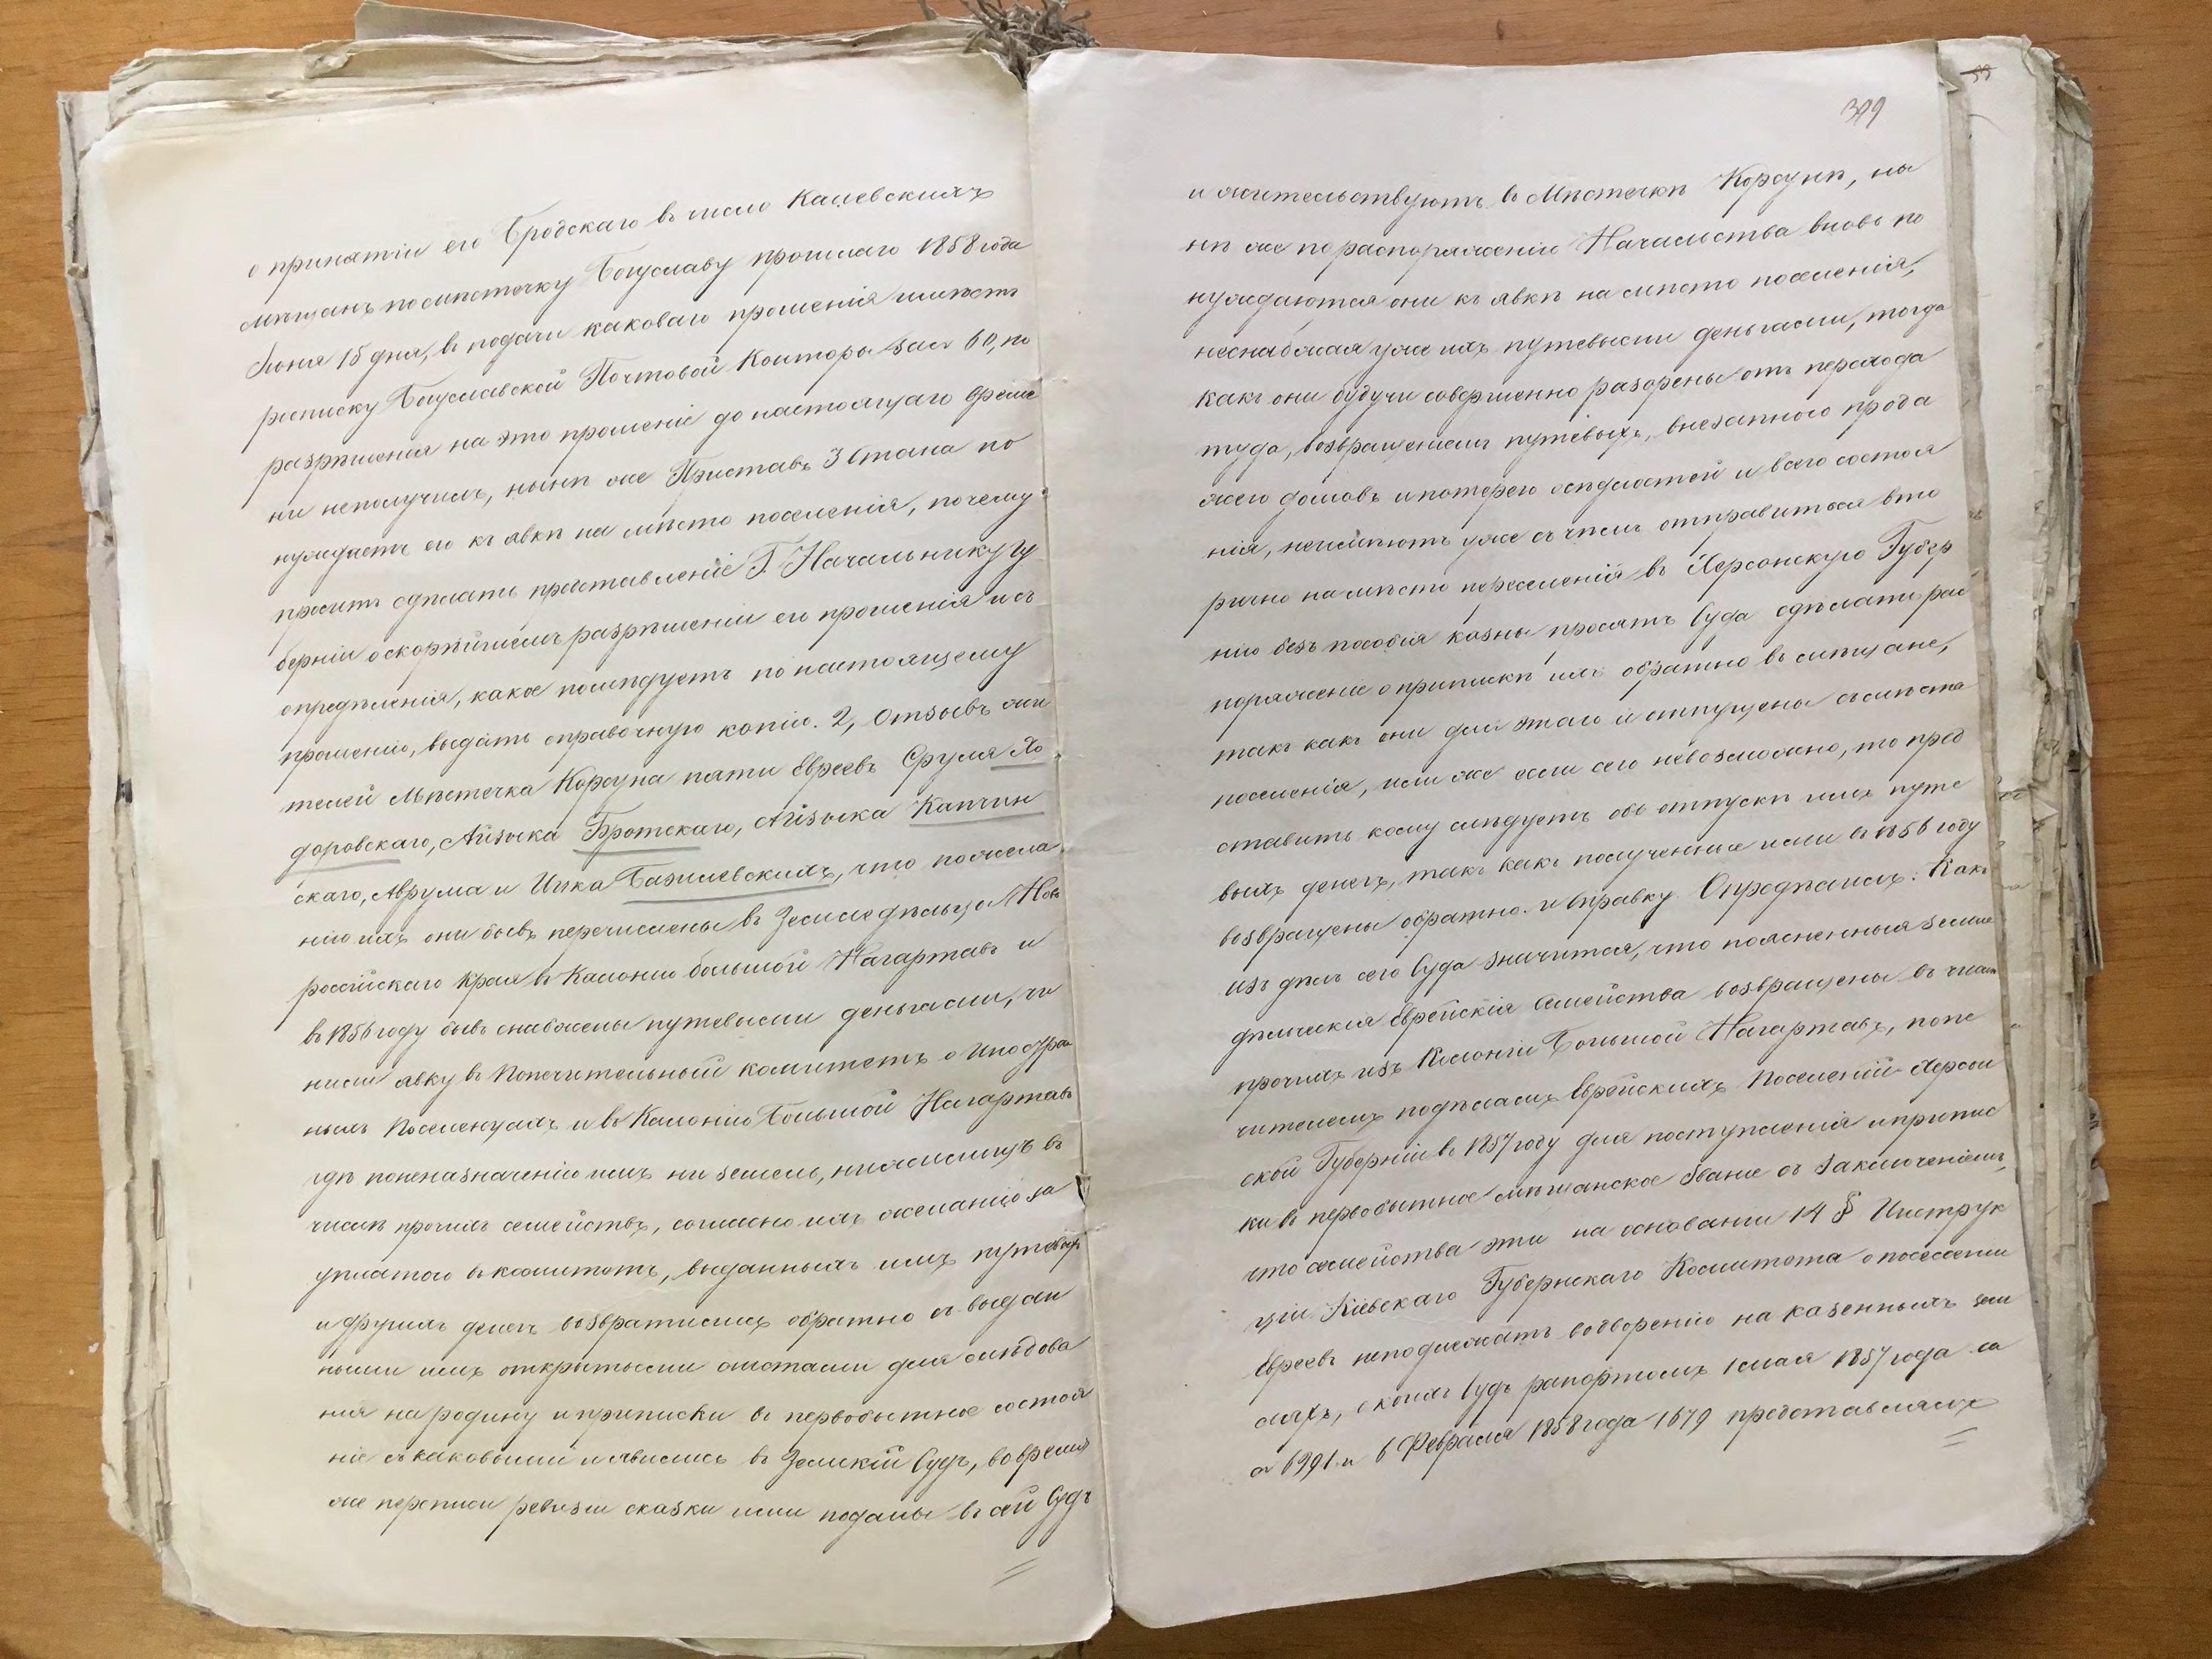 о принятіи его Бродскаго въ число Каневскихъ
мѣщанъ по мѣстечку Богуславу прошлаго 1858 года
Іюня 15 дня, въ подачи каковаго прошенія имѣетъ
росписку Богуславской Почтовой Конторы за № 60, но
разрѣшенія на это прошеніе до настоящаго време
ни неполучилъ, нынѣ же Приставъ 3 Стана по
нуждаетъ его къ явкѣ на мѣсто поселенія, почему
проситъ сдѣлать представленіе Г. Начальнику Гу
берніи о скорѣйшемъ разрѣшеніи его прошенія и съ
опредѣленія, какое послѣдуетъ по настоящему
прошенію, выдать справочную копію. 2, Отзывъ жи
телей Мѣстечка Корсуна пяти Евреевъ Сруля Хо
доровскаго, Айзыка Бротскаго, Айзыка Капчин
скаго, Аврума и Ицка Базилевскихъ, что по жела
нію ихъ они бывъ перечислены въ Земледѣльцы Ново
россійскаго Края въ Калонію большой Нагартавъ и
въ 1856 году бывъ снабжены путевыми деньгами, чи
нили явку въ Попечительный комитетъ о Иностран
ныхъ Поселенцахъ и въ Калонію Большой Нагартавъ
гдѣ по неназначенію имъ ни земель, ни жилищъ въ
числѣ прочихъ семействъ, согласно ихъ желанію за
уплатою въ комитетъ, выданныхъ имъ путевыхъ
и другихъ денегъ возвратились обратно съ выдан
ными имъ открытыми листами для слѣдова
нія на родину и приписки въ первобытное состоя
ніе съ каковыми и явились въ Земскій Судъ, во время
же переписи ревизіи сказки ими поданы въ сей Судъ
399
и жительствуютъ въ Мѣстечкѣ Корсунѣ, ны
нѣ же по распоряженію Начальства вновь по
нуждаются они къ явкѣ на мѣсто поселенія,
неснабжая уже ихъ путевыми деньгами, тогда
какъ они будучи совершенно разорены отъ перехода
туда, возвращеніемъ путевыхъ, внезапною прода
жею домовъ и потерею осѣдлостей и всего состоя
нія, неимѣютъ уже съ чѣмъ отправиться вто
рично на мѣсто переселенія въ Херсонскую Губер
нію безъ пособія казны просятъ Суда сдѣлать рас
поряженіе о припискѣ ихъ обратно въ мѣщане,
такъ какъ они для этаго и отпущены съ мѣста
поселенія, или же если сего невозможно, то пред
ставить кому слѣдуетъ объ отпускѣ имъ путе
выхъ денегъ, такъ какъ полученныя ими въ 1856 году
возвращены обратно. и Справку. Опредѣлилъ: Какъ
изъ дѣлъ сего Суда значится, что поясненныя земле
дѣльческія Еврейскія Семейства возвращены въ числѣ
прочихъ изъ Калоніи Большой Нагартавъ, попе
чителемъ по дѣламъ Еврейскихъ Поселеній Херсон
ской Губерніи въ 1857 году для поступленія и припис
ки въ первобытное мѣщанское званіе съ заключеніемъ,
что семейства эти на основаніи 14 § Инструк
ціи Кіевскаго Губернскаго Комитета о поселеніи
Евреевъ неподлежатъ водворенію на казенныхъ зем
ляхъ, о коихъ Судъ рапортомъ 1 мая 1857 года за
№ 6991 и 6 Февраля 1858 года 1679 представлялъ